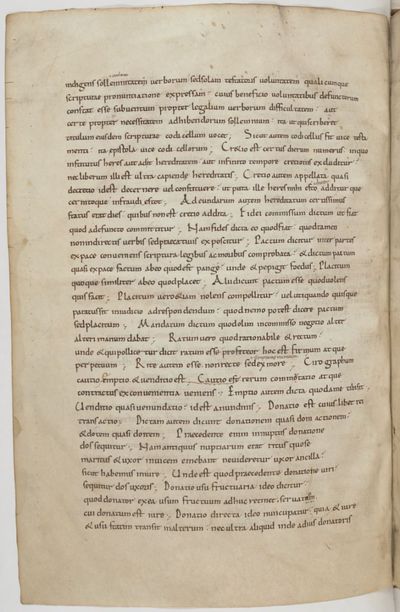 indigens sollemnitatem verborum sed solam testatoris voluntatem qualicunque
scripturae pronuntiatione expressam; cuius beneficio voluntatibus defunctorum
constat esse subventum propter legalium verborum difficultatem; aut
certe propter necessitatem adhibendorum sollemnium; ita ut qui scriberet
titulum eiusdem scripturae codicellum vocet; Sicut autem codicellus fit vice testa
menti; ita epistola vice codicellorum; Cretio est certus dierum numerus in quo
institutus heres aut adit hereditatem aut finito tempore cretionis excluditur;
nec liberum illi est ultra capiendae hereditatis; Cretio autem appellata quasi
decretio id est decernere vel constituere; ut puta ille heres mihi esto additur que
cernitoque infra dies tot; Adeundarum autem hereditatum certissimus
status erat dies quibus non est cretio addita; Fidei commissum dictum ut fiat
quod a defuncto committitur; Nam fides dicta eo quod fiat; quod tamen
non in directis verbis sed precativis exposcitur; Pactum dicitur inter partes
ex pace conveniens scriptura legibus ac moribus comprobata; & dictum pactum
quasi ex pace factum ab eo quod est pango; unde & pepigit foedus; Placitum
quoque similiter ab eo quod placet; Alii dicunt pactum esse quod volens
quis facit; Placitum vero etiam nolens compellitur; veluti quando quisque
paratus sit in iudicio ad respondendum; quod nemo potest dicere pactum
sed placitum; Mandatum dictum quod olim in commisso negotio alter
alteri manum dabat; Ratum vero quasi rationabile & rectum;
unde & qui pollicetur dicit ratum esse profiteor hoc est firmum atque
perpetuum; Rite autem esse non recte sed ex more; Cirographum
cautio; Emptio & venditio est; Cautio est rerum commutatio atque
contractus ex convenientia veniens; Emptio autem dicta quod a me tibi sit,
Venditio quasi venundatio; id est a nundinis; Donatio est cuiuslibet rei
transactio; Dictam autem dicunt donationem quasi doni actionem;
& dotem quasi do item; Praecedente enim in nuptiis donatione
dos sequitur; Nam antiquus nuptiarum erat ritus quo se
maritus & uxor invicem emebant ne videretur uxor ancilla;
sicut habemus in iure; Inde est quod praecedente donatione viri
sequitur dos uxoris; Donatio usufructuaria ideo dicitur
quod donator ex ea usum fructuum adhuc retinet servato
cui donatum est iure; Donatio directa ideo nuncupatur quia & iure
& usu statim transit in alterum; nec ultra aliquid inde ad ius donatoris